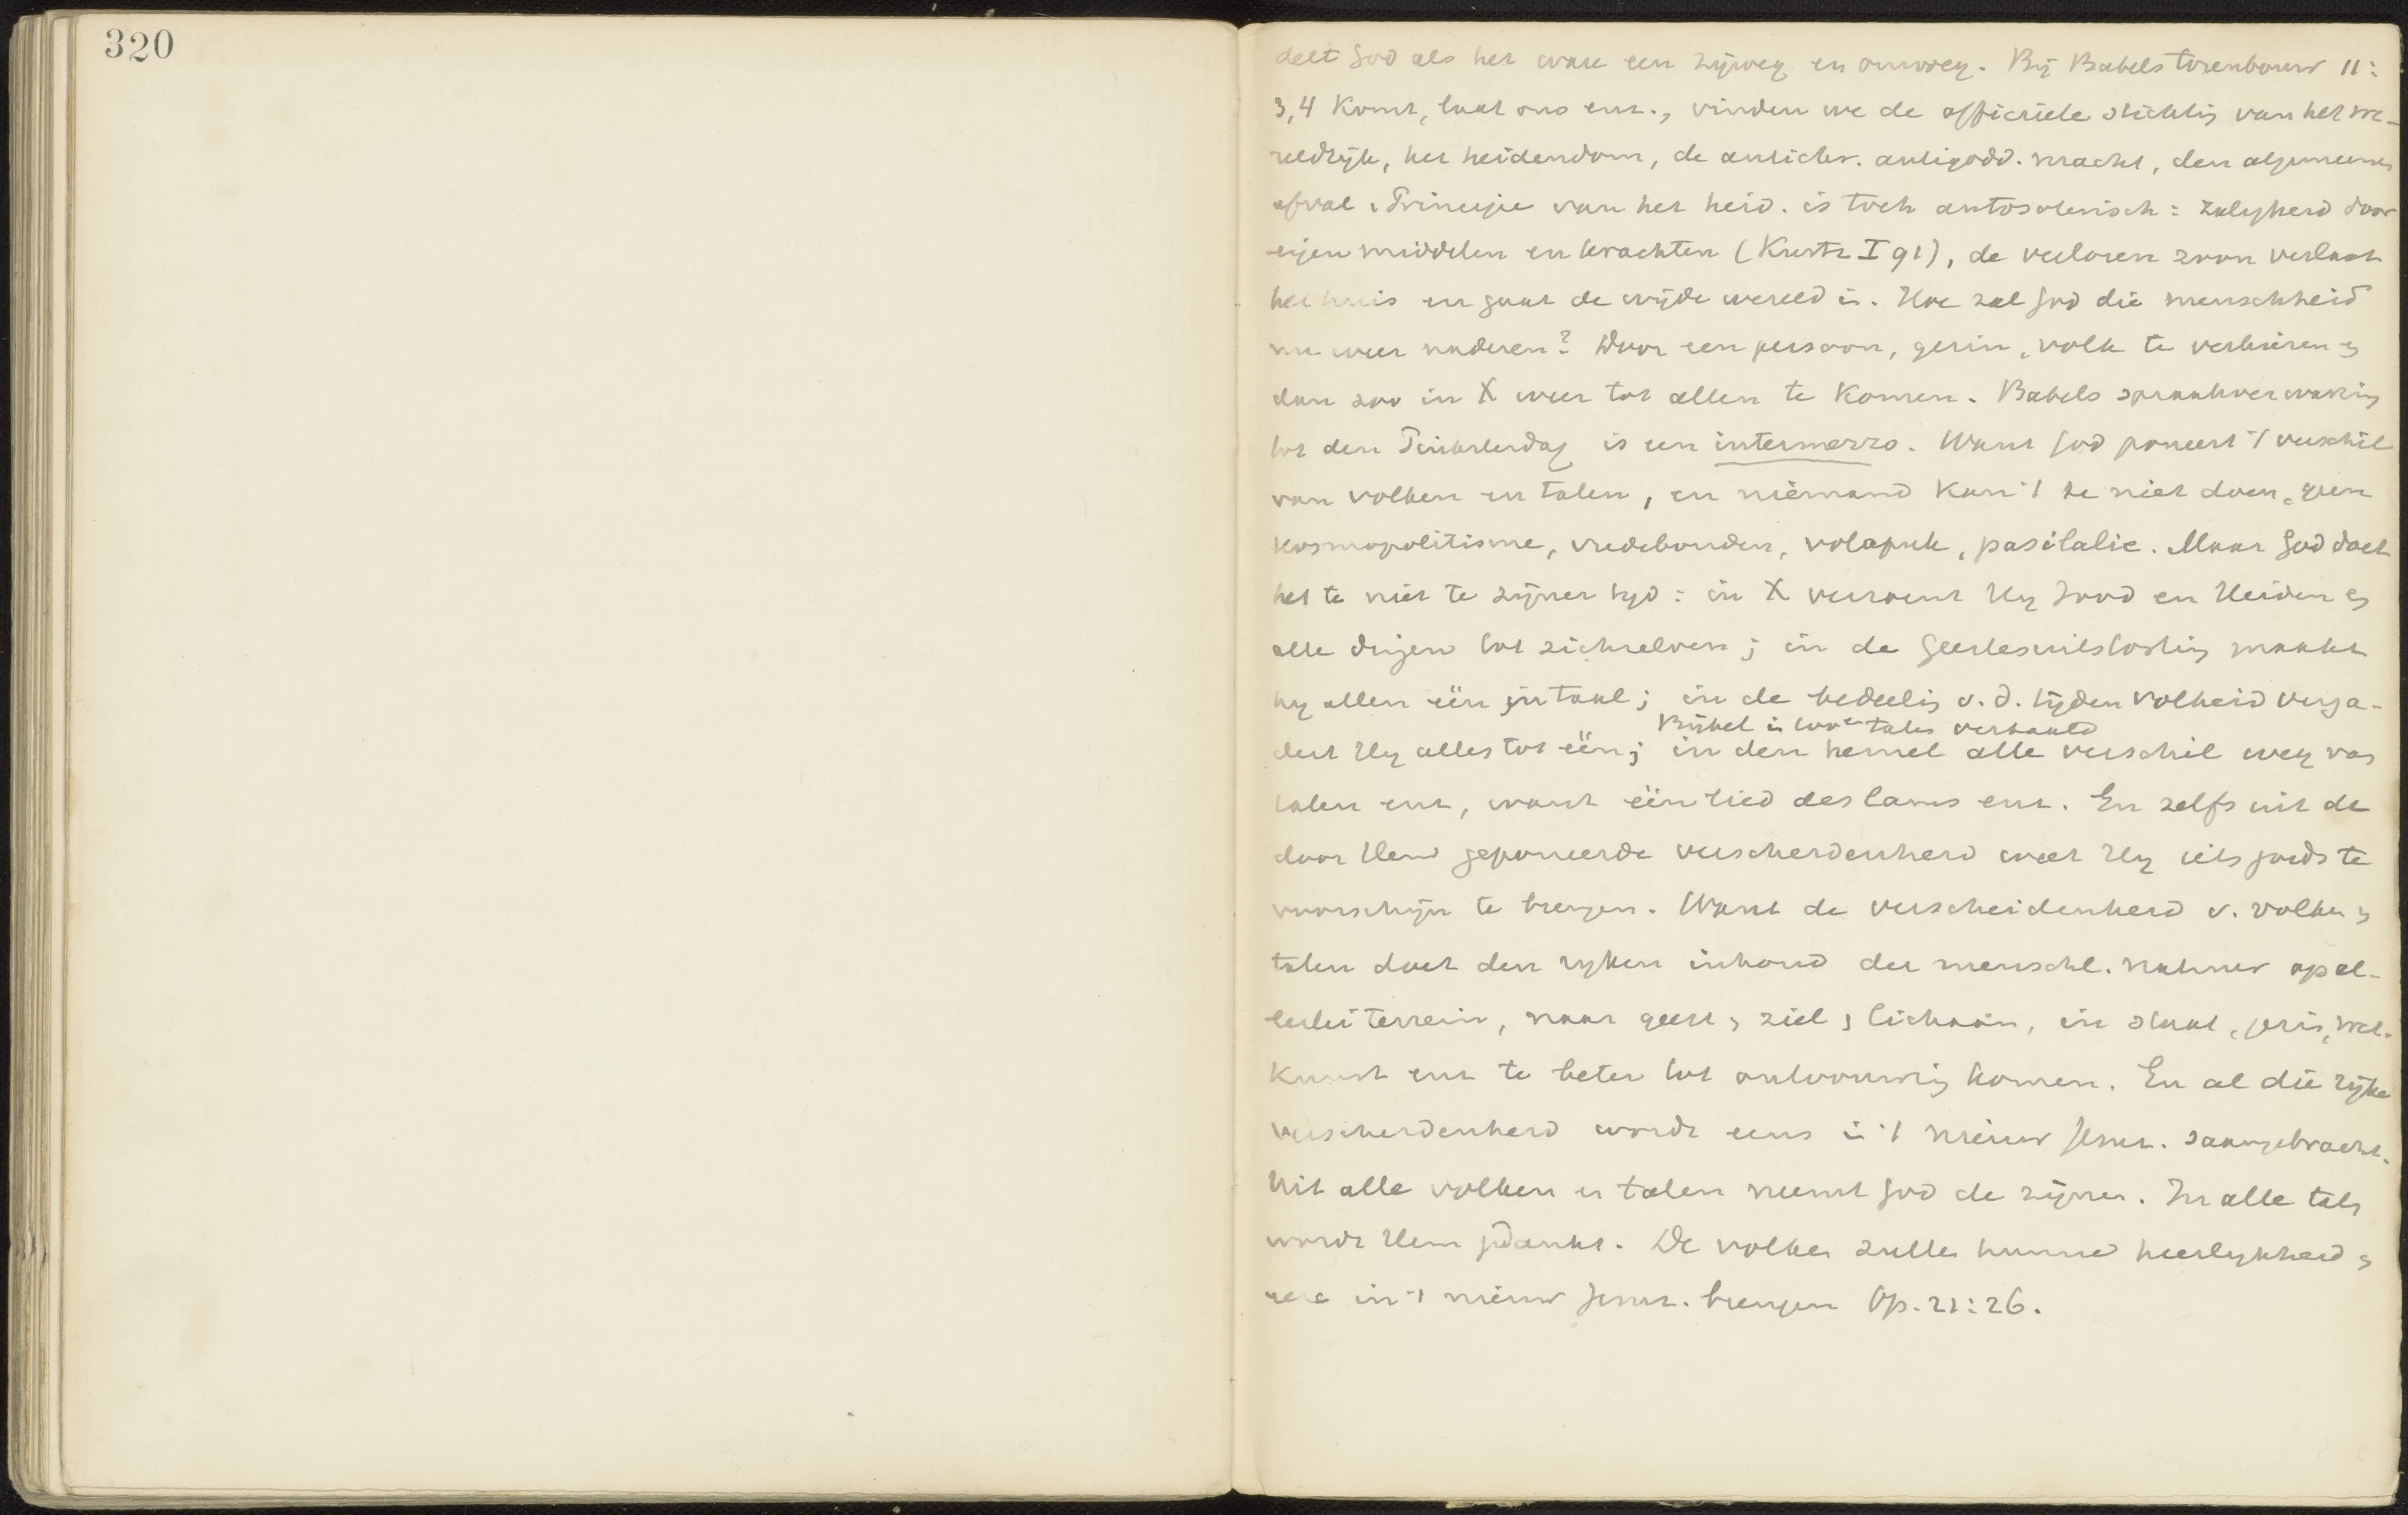 320
delt God als het ware een zijweg en omweg. Bij Babels torenbouw 11:
3,4 Komt, laat ons enz., vinden we de officieele stichtig van het we-
reldrijk, het heidendom, de antichr. antigodd. macht, den algemeenen
afval. Principe van het heid. is toch autosoterisch: zaligheid door
eigen middelen en krachten (Kurtz I 91), de verloren zoon verlaat
het huis en gaat de wijde wereld in. Hoe zal God die menschheid
nu weer naderen? Door een persoon, gezin, volk te verkiezen en
dan zoo in X weer tot allen te komen. Babels spraakverwarring
tot den Pinksterdag is een intermezzo. Want God poneert 't verschil
van volken en talen, en niemand kan 't te niet doen, geen
kosmopolitisme, vredebonden, volapuk, pasilalie. Maar God doet
het te niet te zijner tijd: in X verzoent Hij Jood en Heiden en
alle dingen tot zichzelven; in de Geestesuitstorting maakt
hij allen één in taal; in de bedeelig v. d. tijden volheid verga-
Bijbel in talen vertaald
dert Hij alles tot één; in den hemel alle verschil weg van
talen enz, want één lied des lams enz. En zelfs uit de
door Hem geponeerde verscheidenheid weet Hij iets goeds te
voorschijn te brengen. Want de verscheidenheid v. volken en
talen doet den rijken inhoud der menschl. natuur op al-
lerlei terrein, naar geest, ziel, lichaam, in staat, gezin, wet.
kunst enz te beter tot ontvouwing komen. En al die rijke
verscheidenheid wordt eens in 't nieuw Jeruz. saamgebracht.
Uit alle volken en talen neemt God de zijnen. In alle talen
wordt Hem gedankt. De volken zullen hunne heerlijkheid en
eere in 't nieuw Jeruz. brengen Op. 21:26.